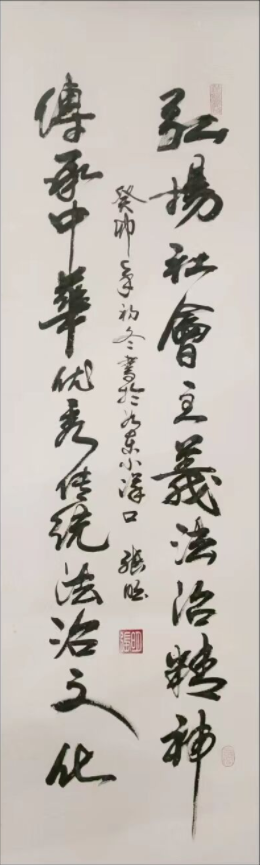 弘揚社會主義法治精神
傳承中華优秀传统法治文化
癸卯年初冬書於如東小洋口 張